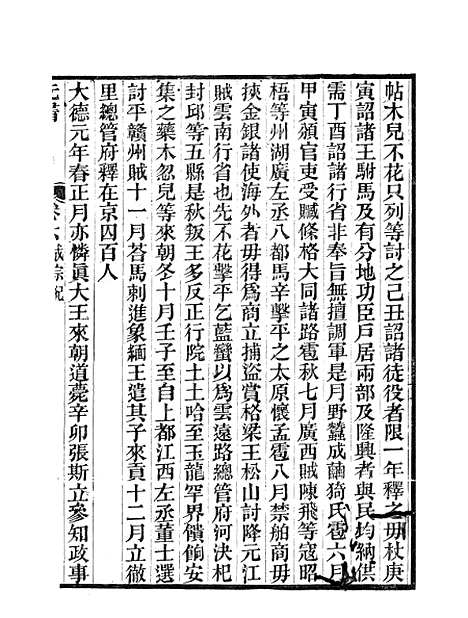 帖木兒不花只列等討之己丑詔諸徒役者限一年釋之毋杖庚
寅詔諸王駙馬及有分地功臣戶居兩部及隆興者與民均納供
需丁酉詔諸行省非奉旨無擅調軍是月野蠶成繭猗氏雹六月
甲寅頒官吏受贓條格大同諸路雹秋七月廣西賊陳飛等寇昭
梧等州湖廣左丞八都馬辛擊平之太原懷孟雹八月禁舶商毋
挾金銀諸使海外者毋得爲商立捕盜賞格梁王松山討降元江
賊雲南行省也先不花擊平乞藍蠻以爲雲遠路總管府河決杞
封邱等五縣是秋叛王多反正行院土土哈至玉龍罕界饋餉安
集之藥木忽兒等來朝冬十月壬子至自上都江西左丞董士選
討平贛州賊十一月荅馬剌進象緬王遣其子來貢十二月立徹
里總管府釋在京囚百人
大德元年春正月亦憐眞大王來朝道薨辛卯張斯立參知政事
元書
卷六 成宗紀